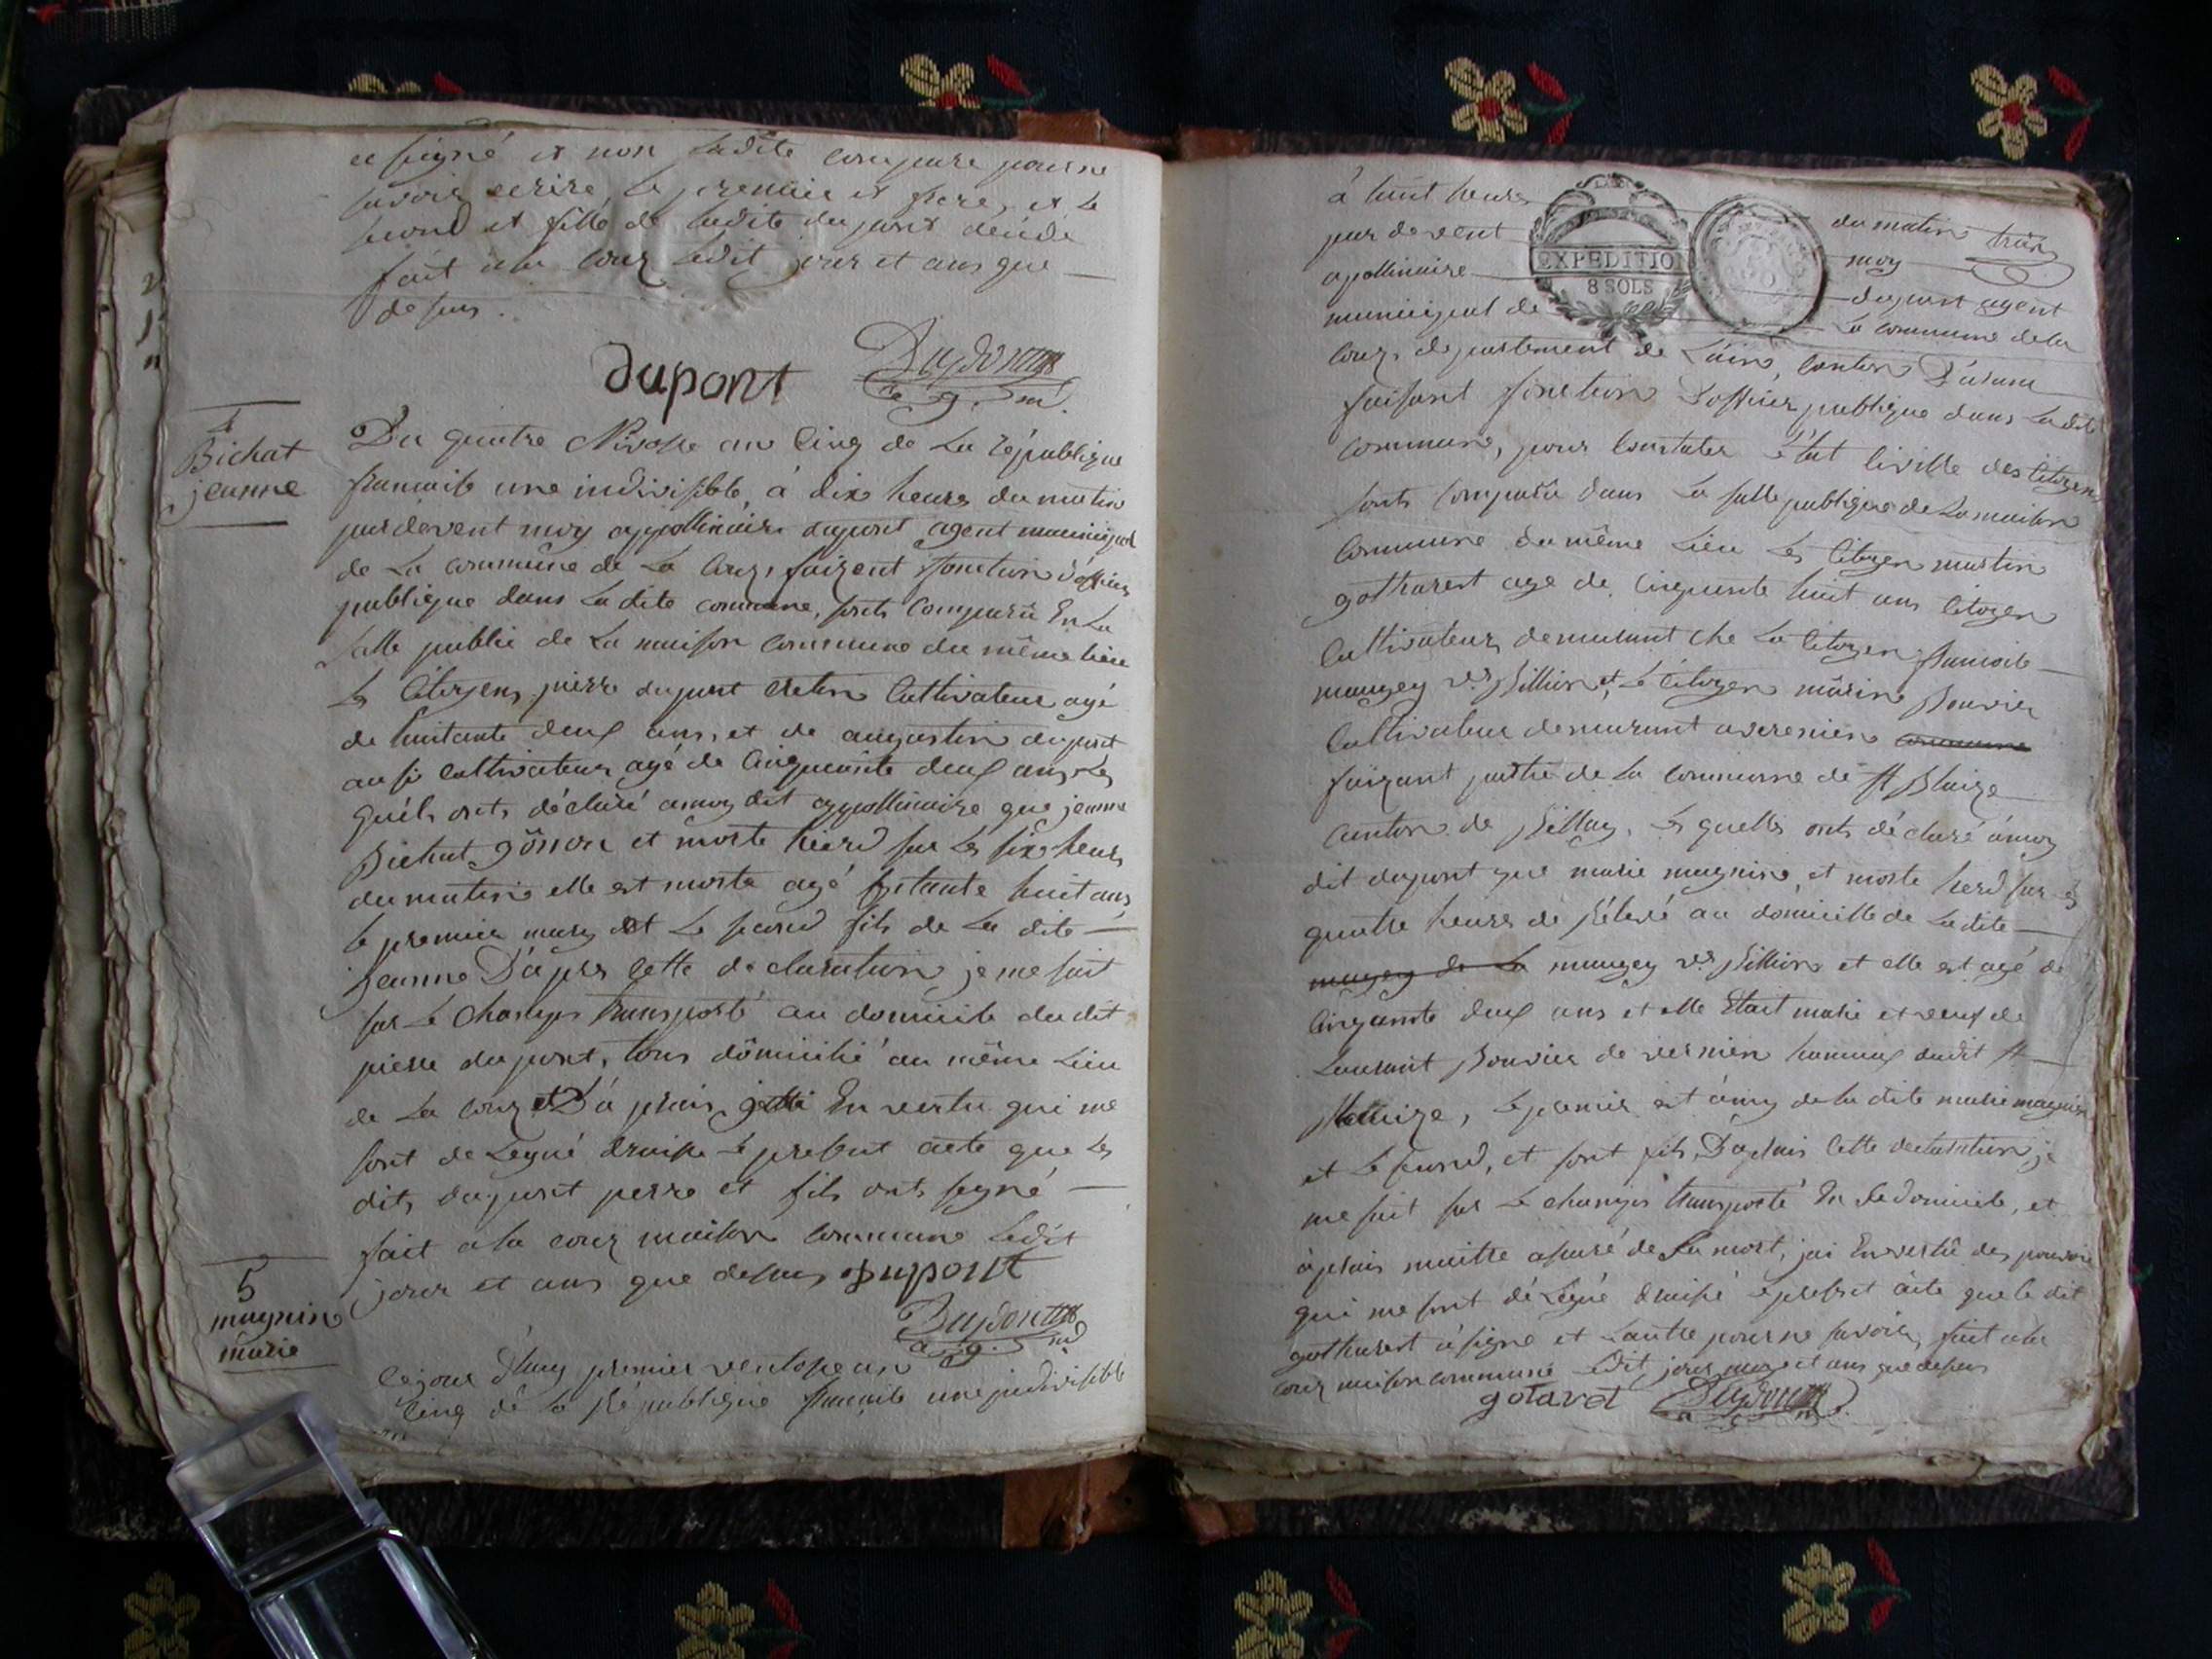 a signé et non ladite compare pour ne
savoir ecrire, le premier et frere, et le
second et fille de ladite dupont décédé
fait a la couz ledit jour et ans que
desus.
dupont Dupont
a. g. m.
4
Bichat
jeanne
Du quatre Nivosse an Cinq de La république
francaise une indivisible, à dix heures du matin
par devent moy appollinaire dupont agent municipal
de La commune de La Couz, faizent fonction d'officier
publique dans La dite commune, sonts Comparû En La
Salle publie de La maison commune du même lieu
Les Citoyens pierre dupont Cultivateur agé
de huitante deux ans, et de augustin dupont
ausi cultivateur agé de Cinquante deux ans, Les
quels onts déclaré a moy dit appollinaire que jeanne
Bichat gonon et morte hierd sur Les six heures
du matin elle est morte agé septante huit ans
le premier mary et Le second fils de La dite
jeanne D'après Cette declaration je me suit
sur Le Champs transporté au domicile du dit
pierre dupont, tous dômicilié au même Lieu
de La couz et En vertu qui me
sont de Legué draisse Le present acte que Les
dits dupont perre et fils onts signé
fait a la couz maison commune Ledit
jour et ans que desus dupont
Dupont
a. g. m.
5
magnin
marie
Cejour d'huy premier ventosse an
Cinq de La République francaise une indivisible
à huit heures du matin
par devent moy
apollinaire dupont agent
municipal de La commune de la
EXPEDITIO
8 SOLS
Couz, departement de L'ain, Canton
faisant fonction D'officier publique dans Ladite
Commune, pour Constater L'état Civille des Citoyens
sonts Comparû dans La salle publique de La maison
Commune du même Lieu Les Citoyen martin
gotharest age de Cinquante huit ans Citoyen
Cultivateur demeurant che La Citoyen francoise
maugey ve Billion et Le Citoyen mârin Bouvier
Cultivateur demeurant a commune
faizant partie de La commune de St Blaize
Canton de Billiay, Les quelles onts déclaré a moy
dit dupont que marie magnin, et morte hierd sur Les
quattre heures de Relevé au domicille de Ladite
maugey de La maugey ve Billion et elle est agé de
Cinqante deux ans et elle Etait marié et veuf de
Laurant Bouvier de hameux dudit St
Blaize, Le premier est amy de la dite marie magnin
et Le second, et sont fils, D'aprais Cette declaration je
me suit sur Le champs transporté En Le domicile, et
aprais maître assuré de La mort, jai En vertû des pouvoir
qui me sont délegué draissé Le present acte que le dit
gotharest a signe et Lautre pour ne savoir, fait a la
couz maison commune Ledit jour, moy et ans que desus
gotaret Dupont